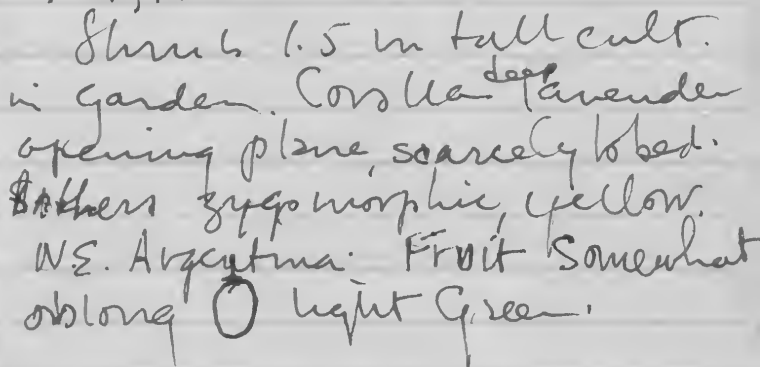 Shrub 1.5 m tall cult.
in garden. Corolla deep lavender
opening plane, scarcely lobed.
Anthers zygomorphic, yellow.
N.E. Argentina. Fruit somewhat
oblong light green.